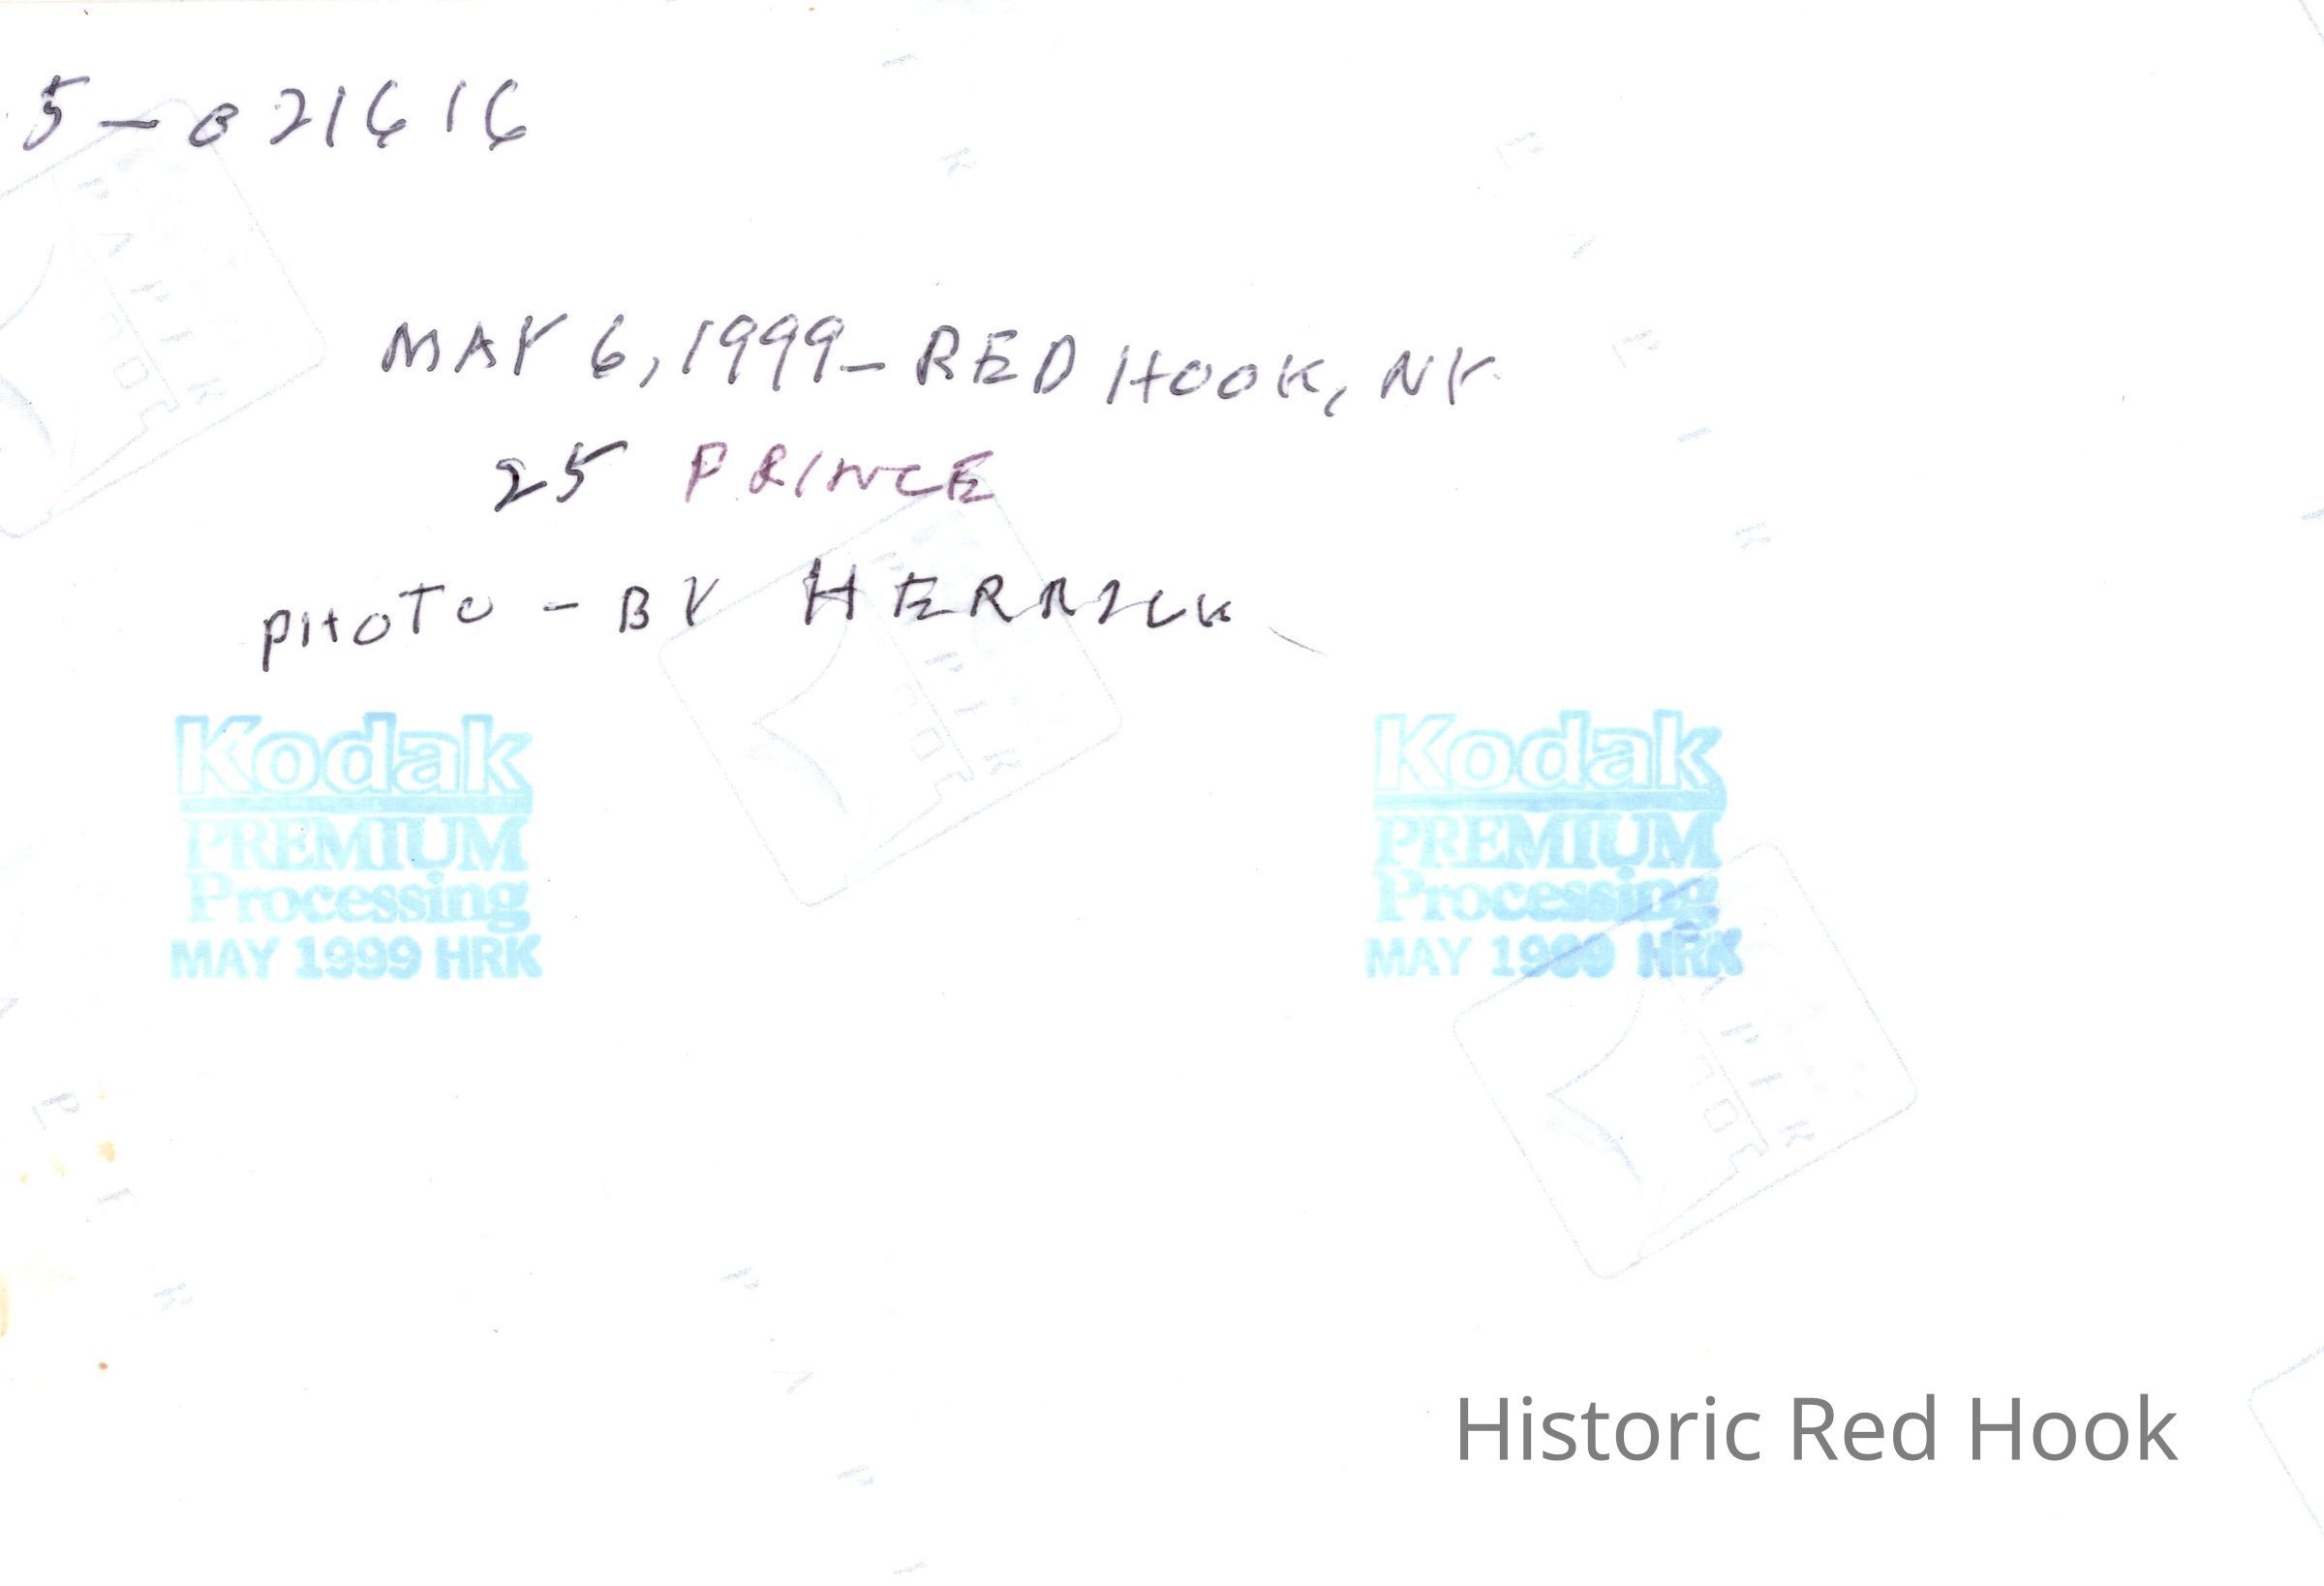 5-021616
MAY 6, 1999-RED HOOK, NY.
25 PRINCE
PHOTO-BY HERRICK
Kodak
PREMIUM
Processing
MAY 1999 HRK
Kodak
PREMIUM
Processing
MAY 1999 HRK
Historic Red Hook